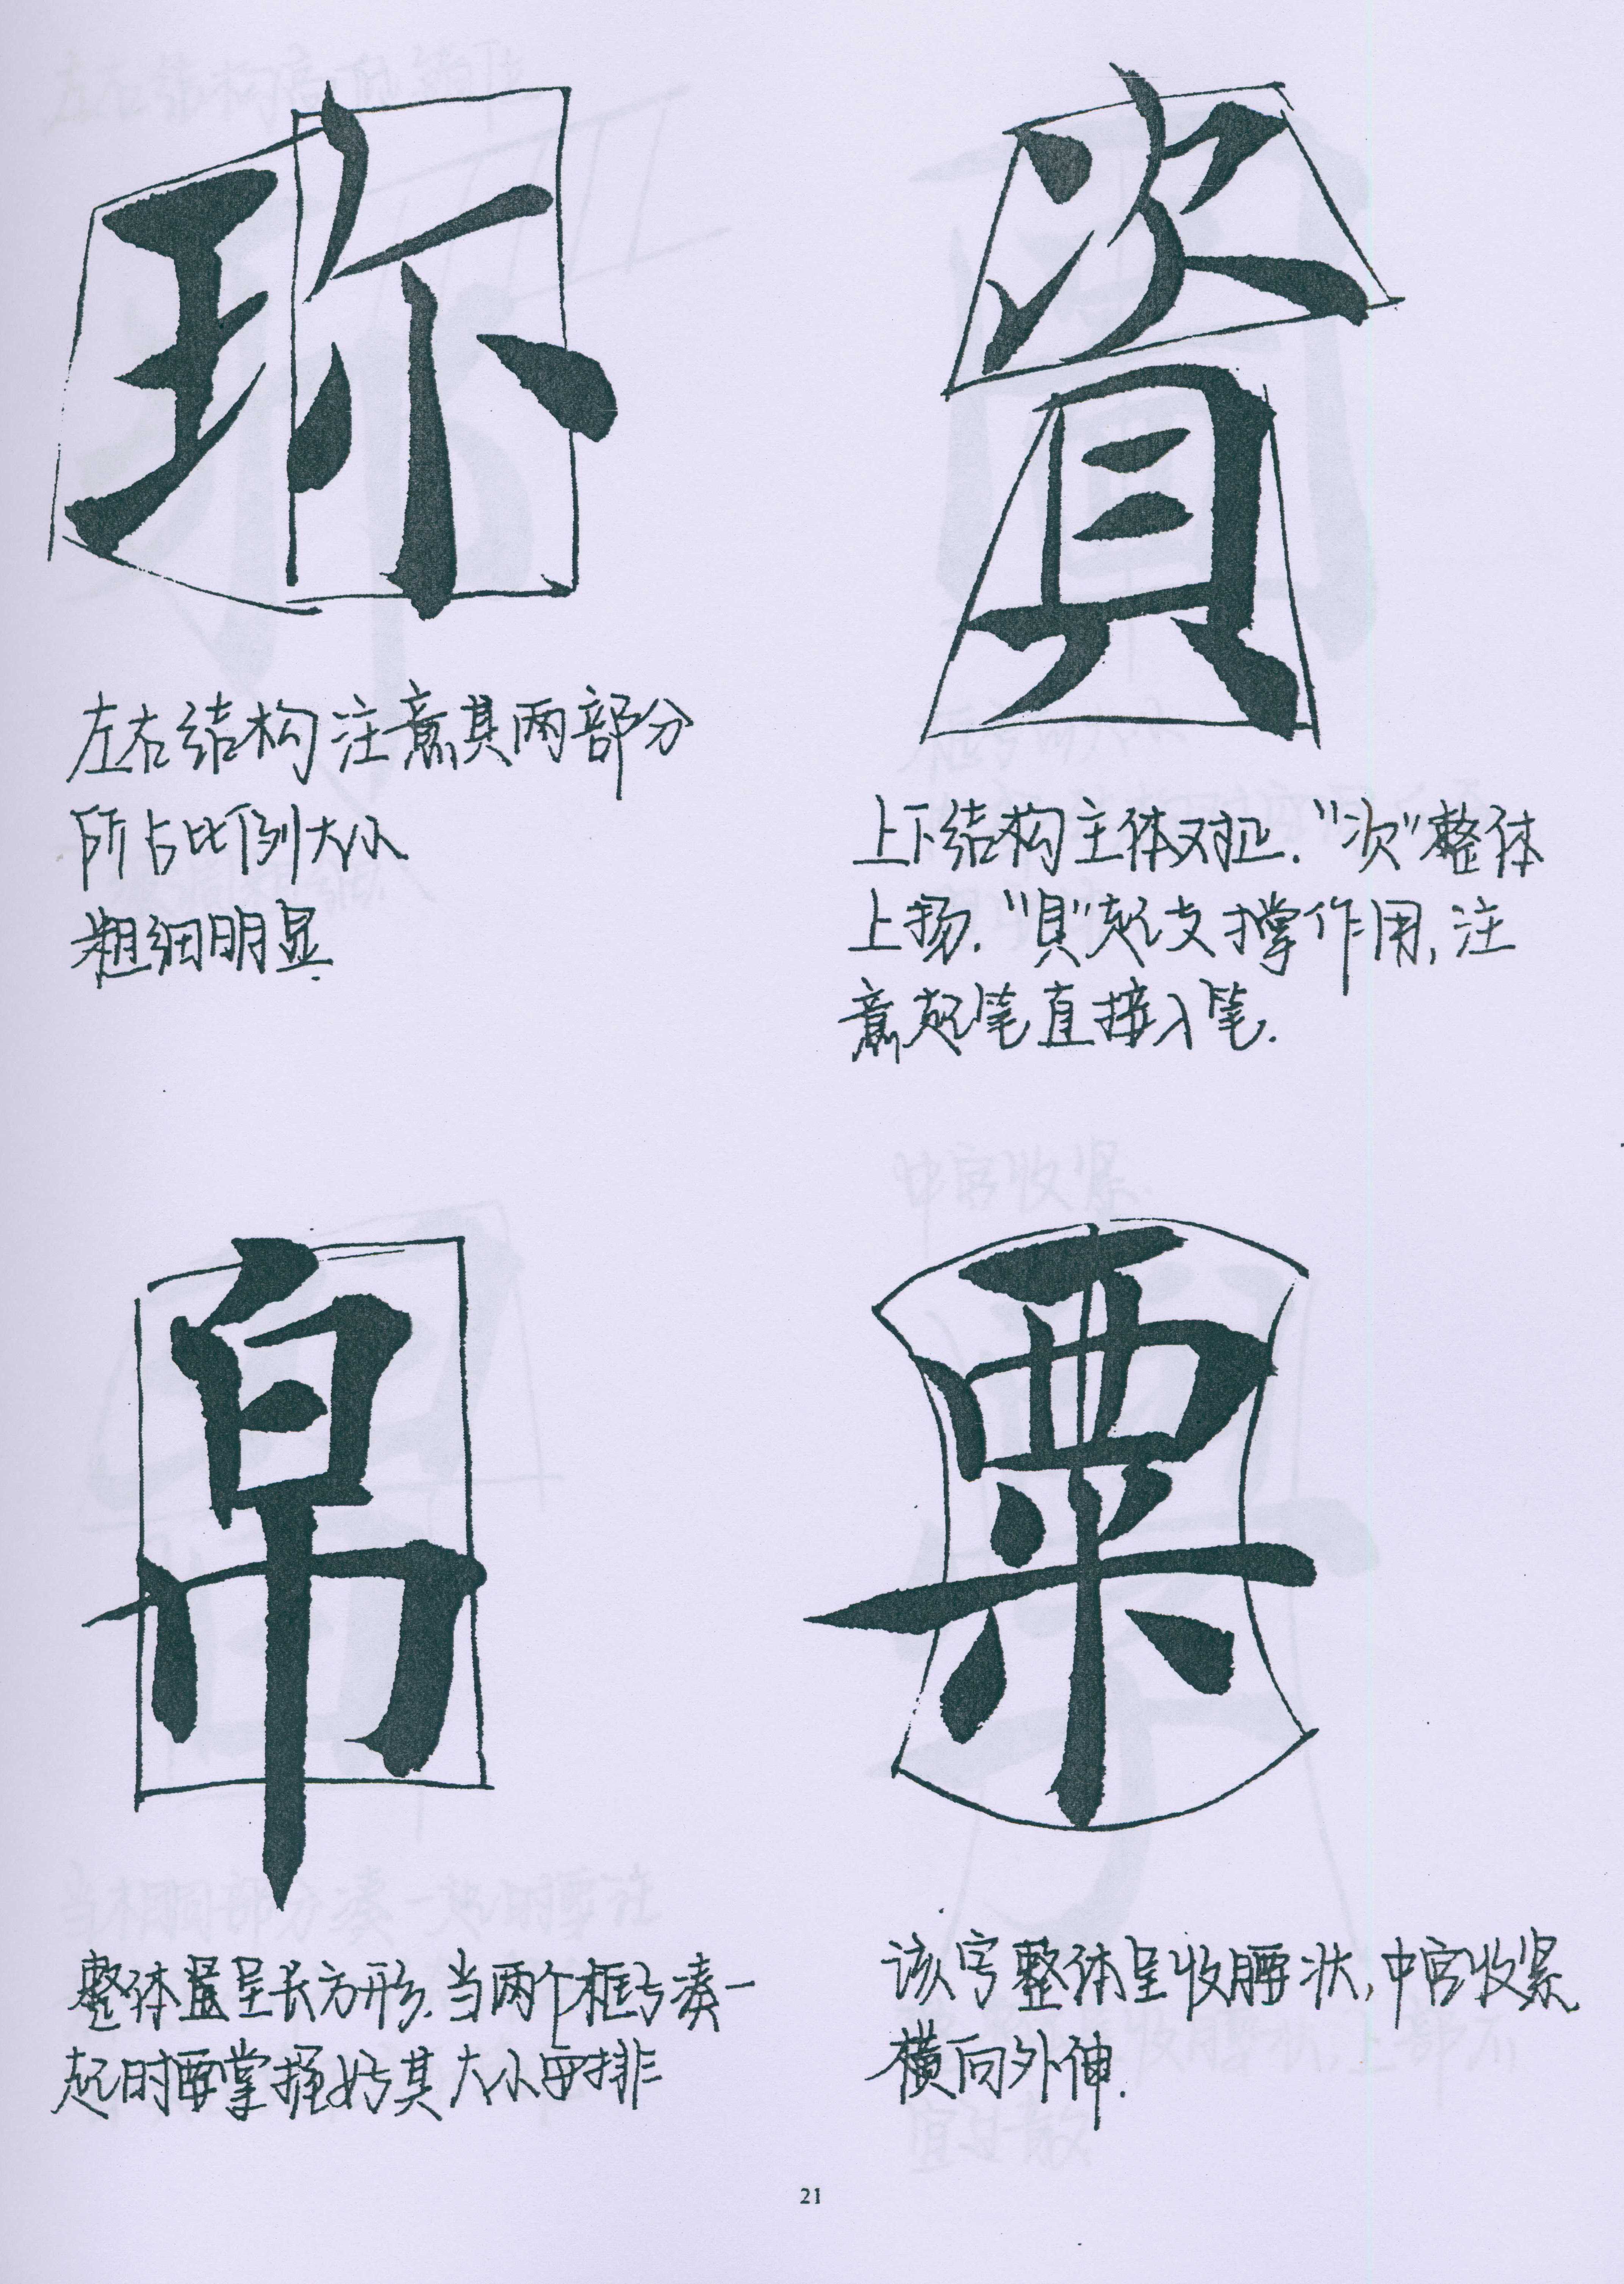 珎
左右结构注意其两部分
所占比例大小
粗细明显.
資
上下结构主体对正."次"整体
上扬."貝"起支撑作用,注
意起笔直接入笔.
帛
整体呈长方形.当两个框凑一
起时要掌握好其大小安排
粟
该字整体呈收腰状,中宫收紧.
横向外伸.
21